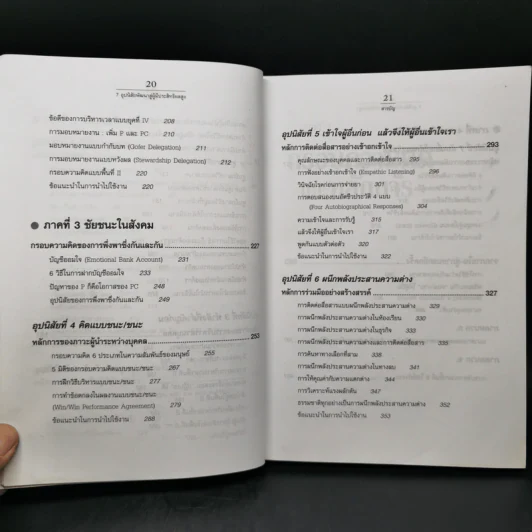 20
7 อุปนิสัยพัฒนาสู่ผู้มีประสิทธิผลสูง
ข้อดีของการบริหารเวลาแบบยุคที่ IV 208
การมอบหมายงาน : เพิ่ม P และ PC 210
มอบหมายงานแบบกำกับบท (Gofer Delegation) 211
การมอบหมายงานแบบหวังผล (Stewardship Delegation) 212
กรอบความคิดแบบพื้นที่ II 220
ข้อแนะนำในการนำไปใช้ 220
ภาคที่ 3 ชัยชนะในสังคม
กรอบความคิดของการพึ่งพาซึ่งกันและกัน 227
บัญชีออมใจ (Emotional Bank Account) 231
6 วิธีในการฝากบัญชีออมใจ 233
ปัญหาของ P ก็คือโอกาสของ PC 248
อุปนิสัยของการพึ่งพาซึ่งกันและกัน 249
อุปนิสัยที่ 4 คิดแบบชนะ/ชนะ
หลักการของภาวะผู้นำระหว่างบุคคล 253
กรอบความคิด 6 ประเภทในความสัมพันธ์ของมนุษย์ 255
5 มิติของกรอบความคิดแบบชนะ/ชนะ 267
การฝึกวิธีบริหารแบบชนะ/ชนะ 277
การทำข้อตกลงในผลงานแบบชนะ/ชนะ
(Win/Win Performance Agreement) 279
ข้อแนะนำในการนำไปใช้งาน 288
21
สารบัญ
อุปนิสัยที่ 5 เข้าใจผู้อื่นก่อน แล้วจึงให้ผู้อื่นเข้าใจเรา
หลักการติดต่อสื่อสารอย่างเข้าอกเข้าใจ 293
คุณลักษณะของบุคคลและการติดต่อสื่อสาร 295
การฟังอย่างเข้าอกเข้าใจ (Empathic Listening) 296
วินิจฉัยโรคก่อนการจ่ายยา 301
การตอบสนองบนอัตชีวประวัติ 4 แบบ
(Four Autobiographical Responses) 304
ความเข้าใจและการรับรู้ 315
แล้วจึงให้ผู้อื่นเข้าใจเรา 317
พูดกันแบบตัวต่อตัว 320
ข้อแนะนำในการนำไปใช้งาน 322
อุปนิสัยที่ 6 ผนึกพลังประสานความต่าง
หลักการร่วมมืออย่างสร้างสรรค์ 327
การติดต่อสื่อสารแบบผนึกพลังประสานความต่าง 329
การผนึกพลังประสานความต่างในห้องเรียน 330
การผนึกพลังประสานความต่างในธุรกิจ 333
การผนึกพลังประสานความต่างและการติดต่อสื่อสาร 335
การค้นหาทางเลือกที่สาม 337
การผนึกพลังประสานความต่างในทางลบ 341
การให้คุณค่ากับความแตกต่าง 344
การวิเคราะห์แรงผลักดัน 347
ธรรมชาติทุกอย่างเป็นการผนึกพลังประสานความต่าง 352
ข้อแนะนำในการนำไปใช้งาน 353